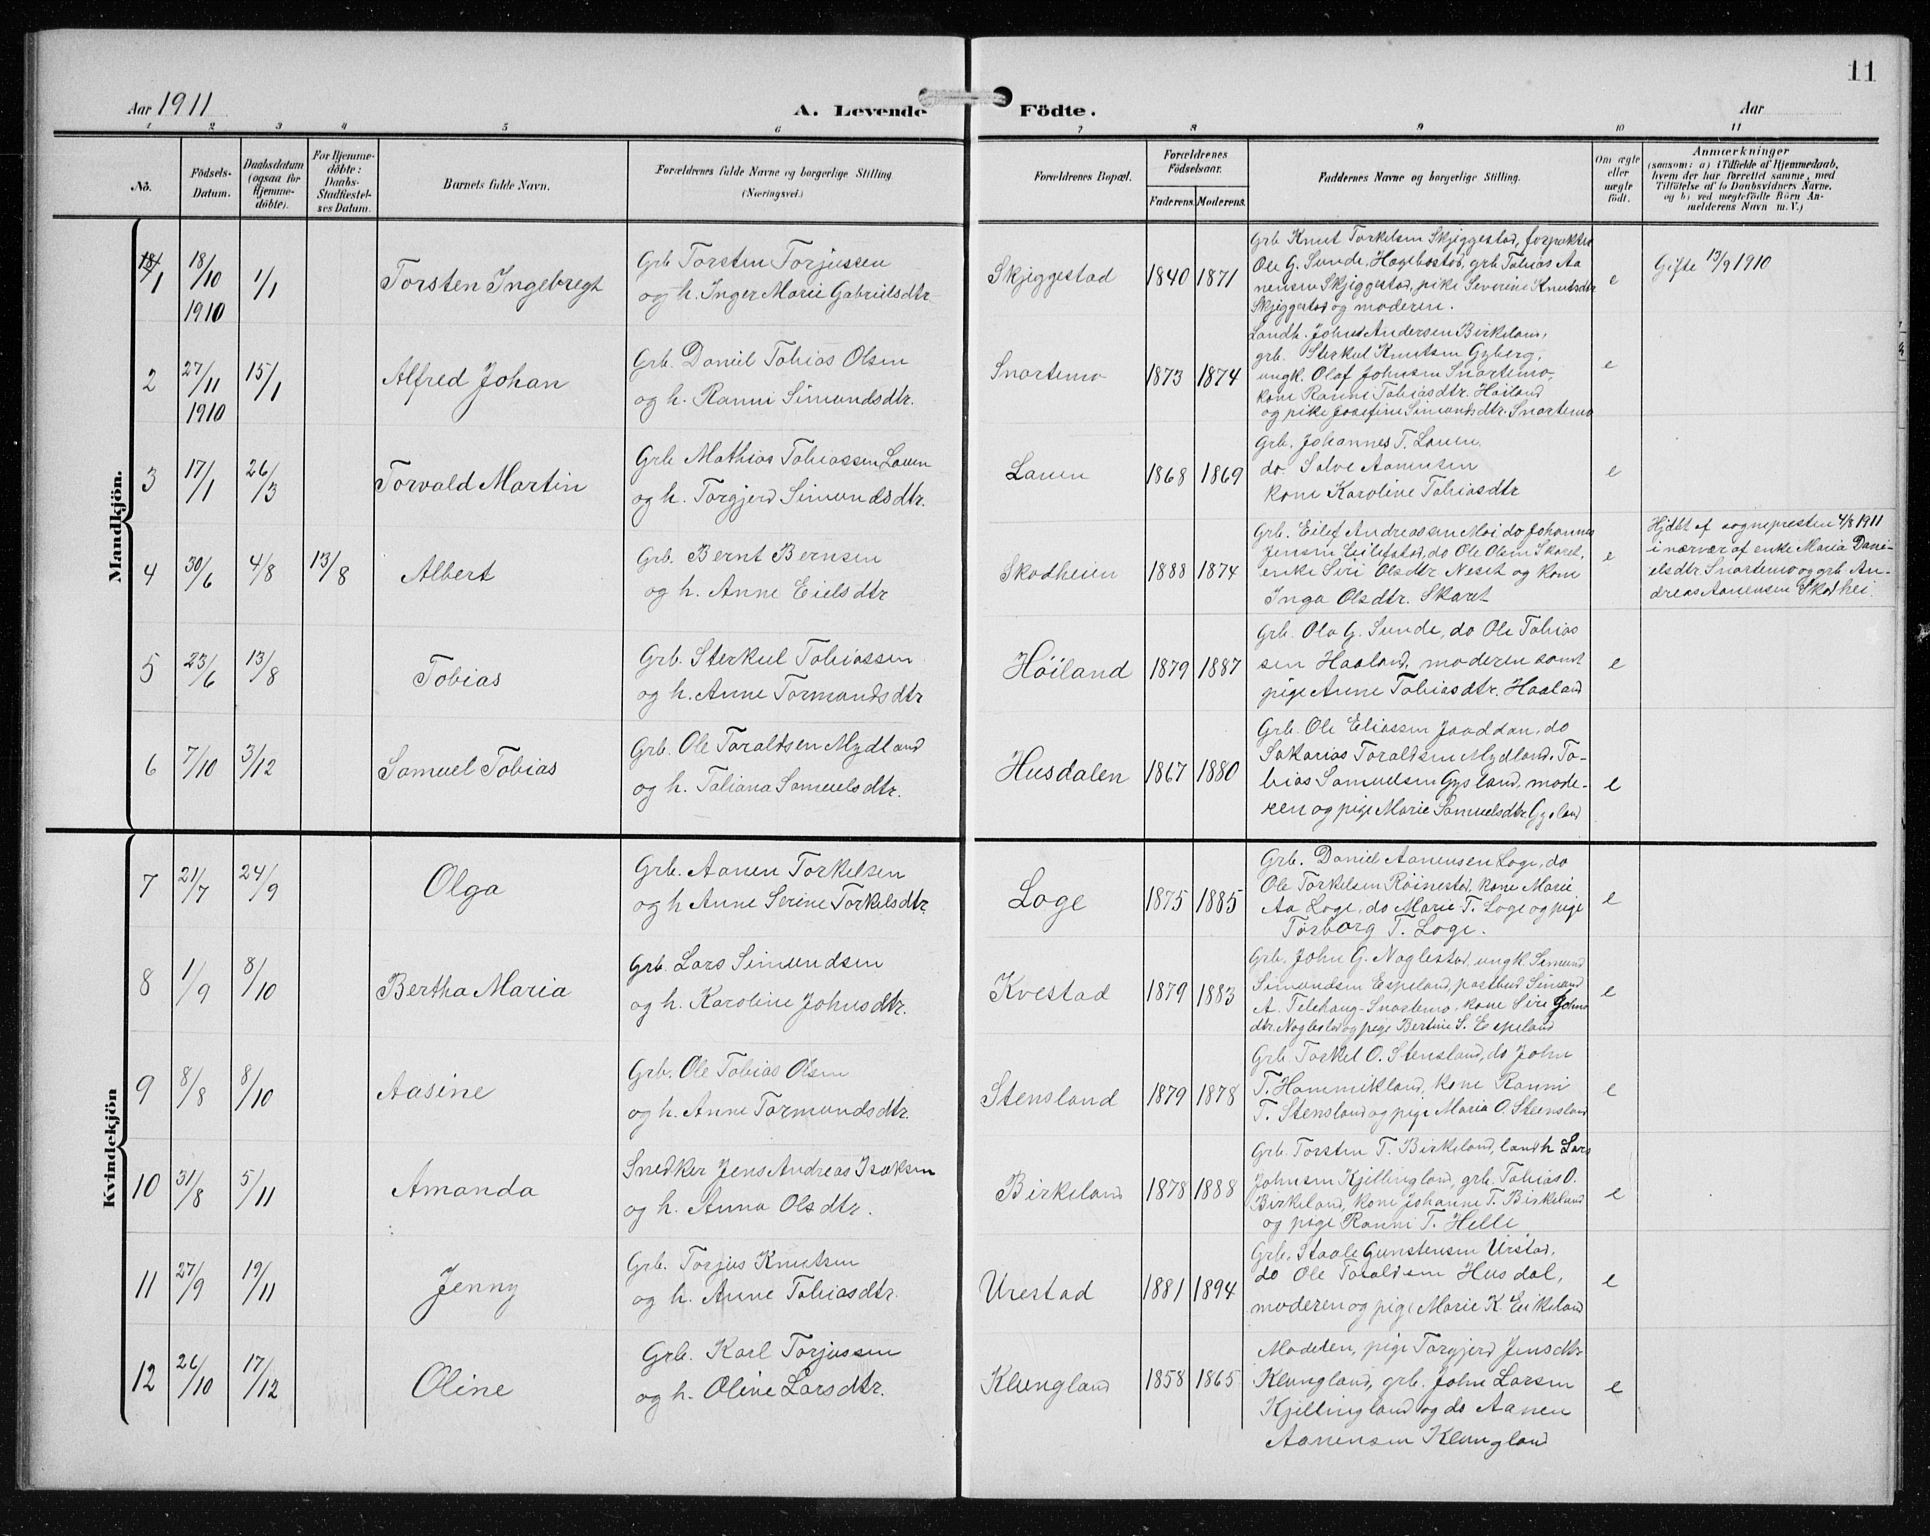 11
Aar 1911
A. Levende Födte.
Aar
1 2 3 4 5 6 7 8 9 10 11
No.
Födsels-
Datum.
Daabsdatum
(ogsaa for
Hjemme-
döbte).
For Hjemme-
döbte:
Daabs-
Stadfæstel-
ses Datum.
Barnets fulde Navn.
Forældrenes fulde Navne og borgerlige Stilling.
(Næringsvei.)
Forældrenes Bopæl.
Forældrenes
Födselsaar.
Faderens. Moderens.
Faddernes Navne og borgerlige Stilling.
Om ægte
eller
uægte
födt.
Anmærkninger
(saasom: a) i Tilfælde af Hjemmedaab,
hvem der har forrettet samme, med
Tilföielse af to Daabsvidners Navne,
og b) ved uægtefödte Börn An-
melderens Navn m. V.)
Mandkjön.
1
18/10
1910
1/1
Torsten Ingebregt
Grb Torsten Torjussen
og h. Inger Marie Gabrielsdtr
Skjeggestad
1840 1871
Grb Knut Torkelsen Skjeggestad,
Ole G. Sunde, Hagebostad, grb Tobias Aa
nensen Skjeggestad, pike Severine Knutsdtr
Skjeggestad og moderen.
e
Gifte 13/9 1910
2
27/11
1910
15/1
Alfred Johan
Grb. Daniel Tobias Olsen
og h. Ranni Simondsdtr.
Snartemo
1873 1874
Landh. Johns Andersen Birkeland,
grb. Sterkel Knutsen Gyberg,
ungk. Olaf Johnsen Snartemo,
kone Ranni Tobiasdtr. Høiland
og pike Josefine Simondsdtr. Snartemo
e
3
17/1
26/3
Torvald Martin
Grb Mathias Tobiassen Lauen
og h. Torgjerd Simondsdtr.
Lauen
1868 1869
Grb. Johannes T. Lauen.
do. Salve Aanensen
kone Karoline Tobiasdtr
e
4
30/6
4/8
13/8
Albert
Grb. Bernt Bernsen
og h. Anne Eielsdtr
Skodheim
1888 1874
Grb. Eilef Andreassen Moi do Johannes
Jensen Eilefstad, do Ole Olsen Skaret,
enke Siri Olsdtr Neset og kone
Inga Olsdtr. Skaret
e
Hjdbt af sognepresten 4/8 1911
i nærvær af enke Maria Dani-
elsdtr Snartemo og grb. An-
dreas Aanensen Skodhei
5
23/6
13/8
Tobias
Grb. Sterkel Tobiassen
og h. Anne Tormondsdtr
Høiland
1879 1887
Grb. Ola G. Sunde, do Ole Tobias
sen Haaland, moderen samt
pige Anne Tobiasdtr. Haaland
e
6
7/10
3/12
Samuel Tobias
Grb. Ole Taraldsen Mydland
og h. Taliana Samuelsdtr.
Husdalen
1867 1880
Grb. Ole Eliassen Jaaddan, do
Sakarias Taraldsen Mydland. To-
bias Samuelsen Gysland, mode-
ren og pige Marie Samuelsdtr Gysland
e
Kvindekjön
7
21/7
24/9
Olga
Grb. Aanen Torkelsen
og h Anne Serine Torkelsdtr.
Loge
1875 1885
Grb. Daniel Aanensen Loge, do
Ole Torkelsen Røinestad, kone Marie
Aa Loge, do Marie T. Loge og pige
Torborg T. Loge.
e
8
1/9
8/10
Bertha Maria
Grb. Lars Simundsen
og h. Karoline Johnsdtr.
Kvestad
1879 1883
Grb. John G. Naglestad, ungk Simund
Simundsen Espeland, postbud Simund
A. Telehaug-Snartemo, kone Siri Johns
dtr. Naglestad og pige Bertine S. Espeland
e
9
8/8
8/10
Aasine
Grb. Ole Tobias Olsen
og h. Anne Tormundsdtr.
Stensland
1879 1878
Grb Torkel O. Stensland, do John
T. Hammikland, kone Ranni
T. Stensland og pige Maria O. Steensland
e
10
31/8
5/11
Amanda
Snedker Jens Andreas Isaksen
og h. Anna Olsdtr.
Birkeland
1878 1888
Grb. Torsten T. Birkeland, landh Lars
Johnsen Kjellingland, grb. Tobias O.
Birkeland, kone Johanne T. Birkeland
og pige Ranni T. Helle
e
11
27/9
19/11
Jenny
Grb. Torjus Knutsen
og h. Anne Tobiasdtr.
Urestad
1881 1894
Grb. Staale Gunstensen Urstad,
do Ole Taraldsen Husdal,
moderen og pige Marie K Eikeland
e
12
26/10
17/12
Oline
Grb. Karl Torjussen
og h. Oline Larsdtr.
Klungland
1858 1865
Moderen, pige Torgjerd Jensdtr
Klungland, grb. John Larsen
Kjellingland og do Aanen
Aanensen Klungland
e